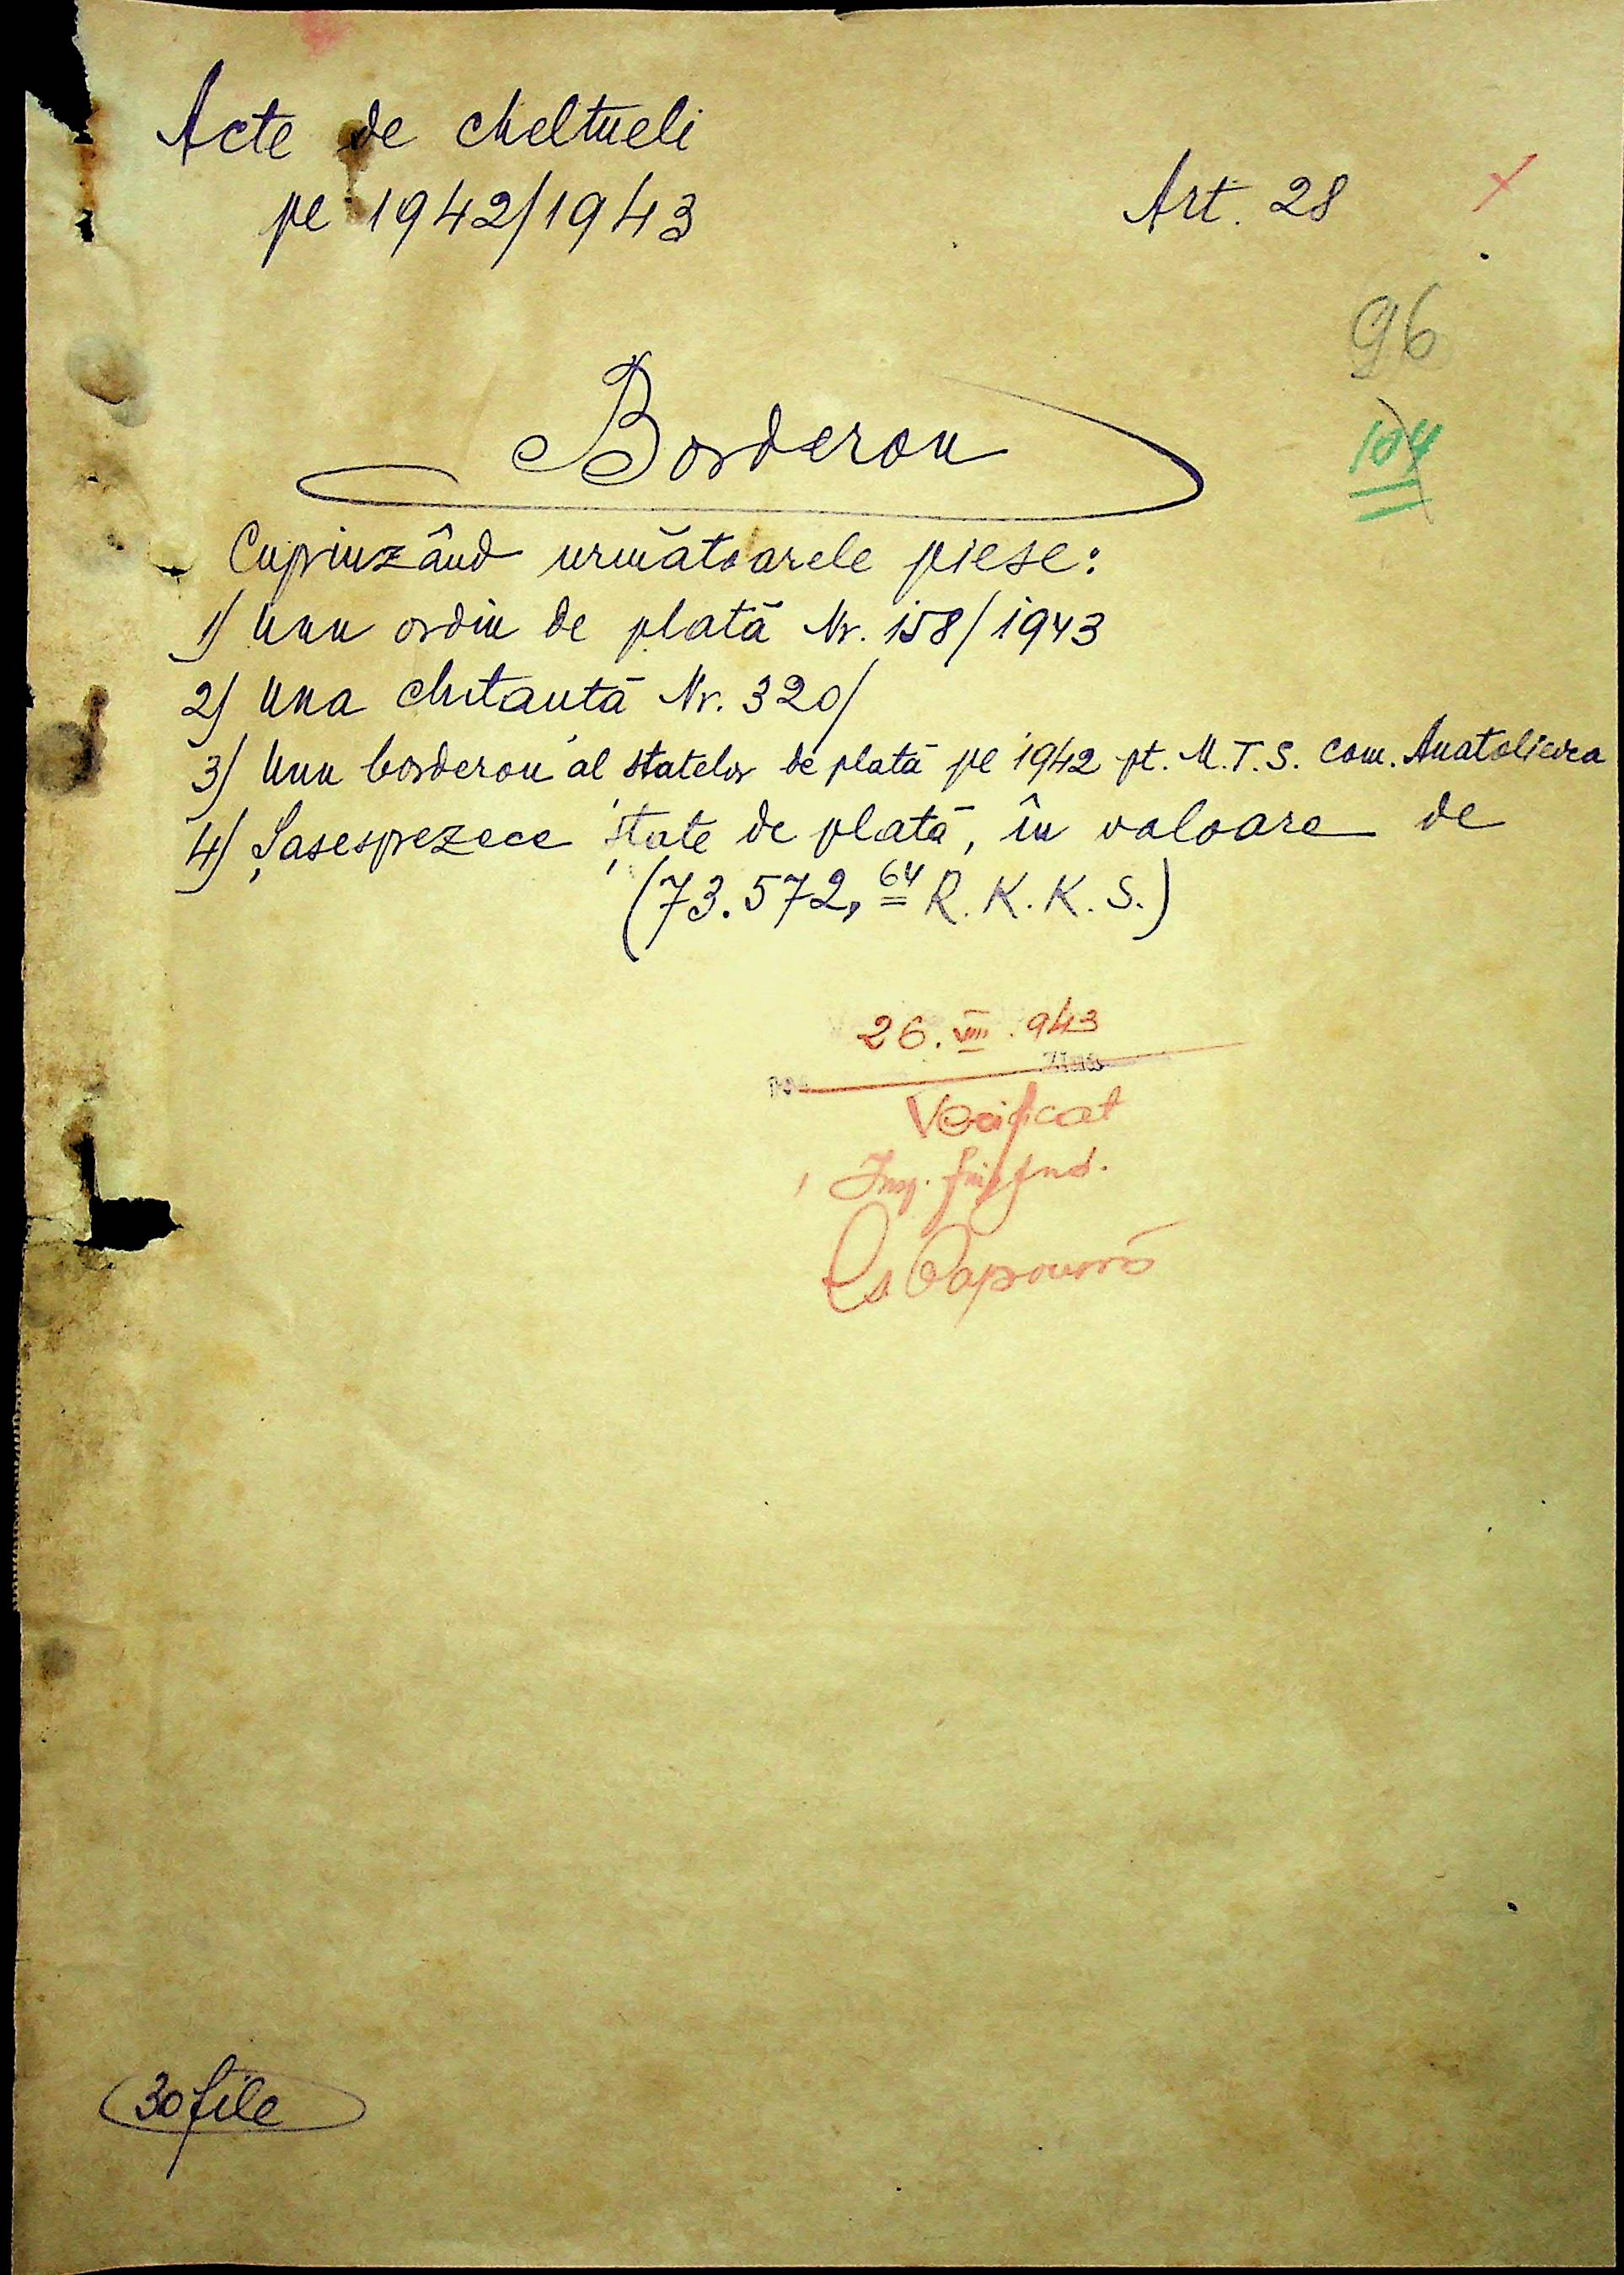 Acte de cheltueli
pe 1942/1943
Art. 28
96
104
Borderou
Cuprinzând următoarele piese:
1) Unu ordin de plată Nr. 158/1943
2) Una chitanță Nr. 320/
3) Unu borderou al statelor de plată pe 1942 pt. M.T.S. com. Anatolievca
4) Șasesprezece state de plată, în valoare de
(73.572,64 R.K.K.S.)
26.VIII.943
Verificat
30 file